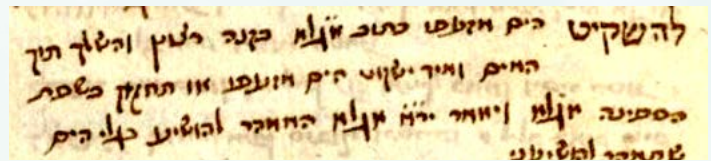 להשקיט הים מזעפו כתוב אגלא בקנה רצוץ והשלך תוך
המים ומיד ישקוט הים מזעפו או תחקק בשפת
הספינה אגלא ויאמר אגלא הממהר להושיע בגלי הים
שתמהר להושיעני